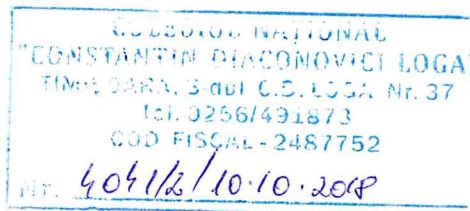 COLEGIUL NAȚIONAL
"CONSTANTIN DIACONOVICI LOGA"
TIMIȘOARA, B-dul C.D. LOGA Nr. 37
tel. 0256/491873
COD FISCAL - 2487752
Nr. 4041/2/10.10.2018